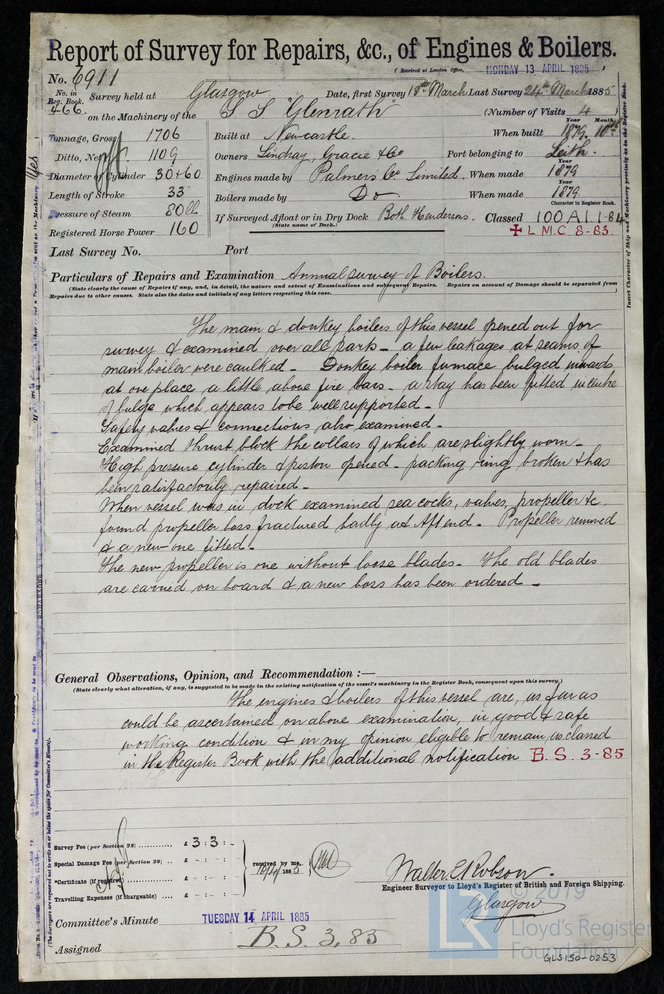 Report of Survey for Repairs, &c., of Engines & Boilers.
(Received at London Office, MONDAY 13 APRIL 1885)
No. 6911
No. in Reg. Book. 466 Survey held at Glasgow Date, first Survey 18th March Last Survey 24th March 1885
on the Machinery of the S S "Glenrath" (Number of Visits 4)
Tonnage, Gross 1706 Built at Newcastle When built Year 1879 Month 10
Ditto, Net 1109 Owners Lindsay, Gracie & Co Port belonging to Leith
Diameter of Cylinder 30 & 60 Engines made by Palmers Co Limited. When made Year 1879
Length of Stroke 33 Boilers made by Do When made Year 1879
Pressure of Steam 80 lb If Surveyed Afloat or in Dry Dock Both Hendersons. Classed Character in Register Book. 100 A.1. 1-84
(State name of Dock.)
Registered Horse Power 160 ✠ L M C 8-83.
Last Survey No. Port
Particulars of Repairs and Examination Annual survey of Boilers.
(State clearly the cause of Repairs if any, and, in detail, the nature and extent of Examinations and subsequent Repairs. Repairs on account of Damage should be separated from
Repairs due to other causes. State also the dates and initials of any letters respecting this case.
The main & donkey boilers of this vessel opened out for
survey & examined over all parts - a few leakages at seams of
main boiler were caulked - Donkey boiler furnace bulged inwards
at one place a little above fire bars - a stay has been fitted in centre
of bulge which appears to be well supported -
Safety valves & connections also examined -
Examined thrust block the collars of which are slightly worn -
High pressure cylinder & piston opened - packing ring broken & has
been satisfactorily repaired -
When vessel was in dock examined sea cocks, valves, propeller &c.
found propeller boss fractured badly at Aft end - Propeller removed
& a new one fitted -
The new propeller is one without loose blades - The old blades
are carried on board & a new boss has been ordered -
General Observations, Opinion, and Recommendation :—
(State clearly what alteration, if any, is suggested to be made in the existing notification of the vessel's machinery in the Register Book, consequent upon this survey.)
The engines & boilers of this vessel are, as far as
could be ascertained on above examination, in good & safe
working condition & in my opinion eligible to remain as classed
in the Register Book with the additional notification B. S. 3-85
Survey Fee (per Section 28) £ 3 : 3 : -
Special Damage Fee (per Section 28) £ - : - : - received by me,
*Certificate (if required) £ - : - : - 1885
Travelling Expenses (if chargeable) £ - : - : -
Walter E Robson
Engineer Surveyor to Lloyd's Register of British and Foreign Shipping.
Glasgow
Committee's Minute TUESDAY 14 APRIL 1885
Assigned B. S. 3, 85
© 2019
Lloyd's Register
Foundation
GLS150-0253
Insert Character of Ship and Machinery precisely as in the Register Book.